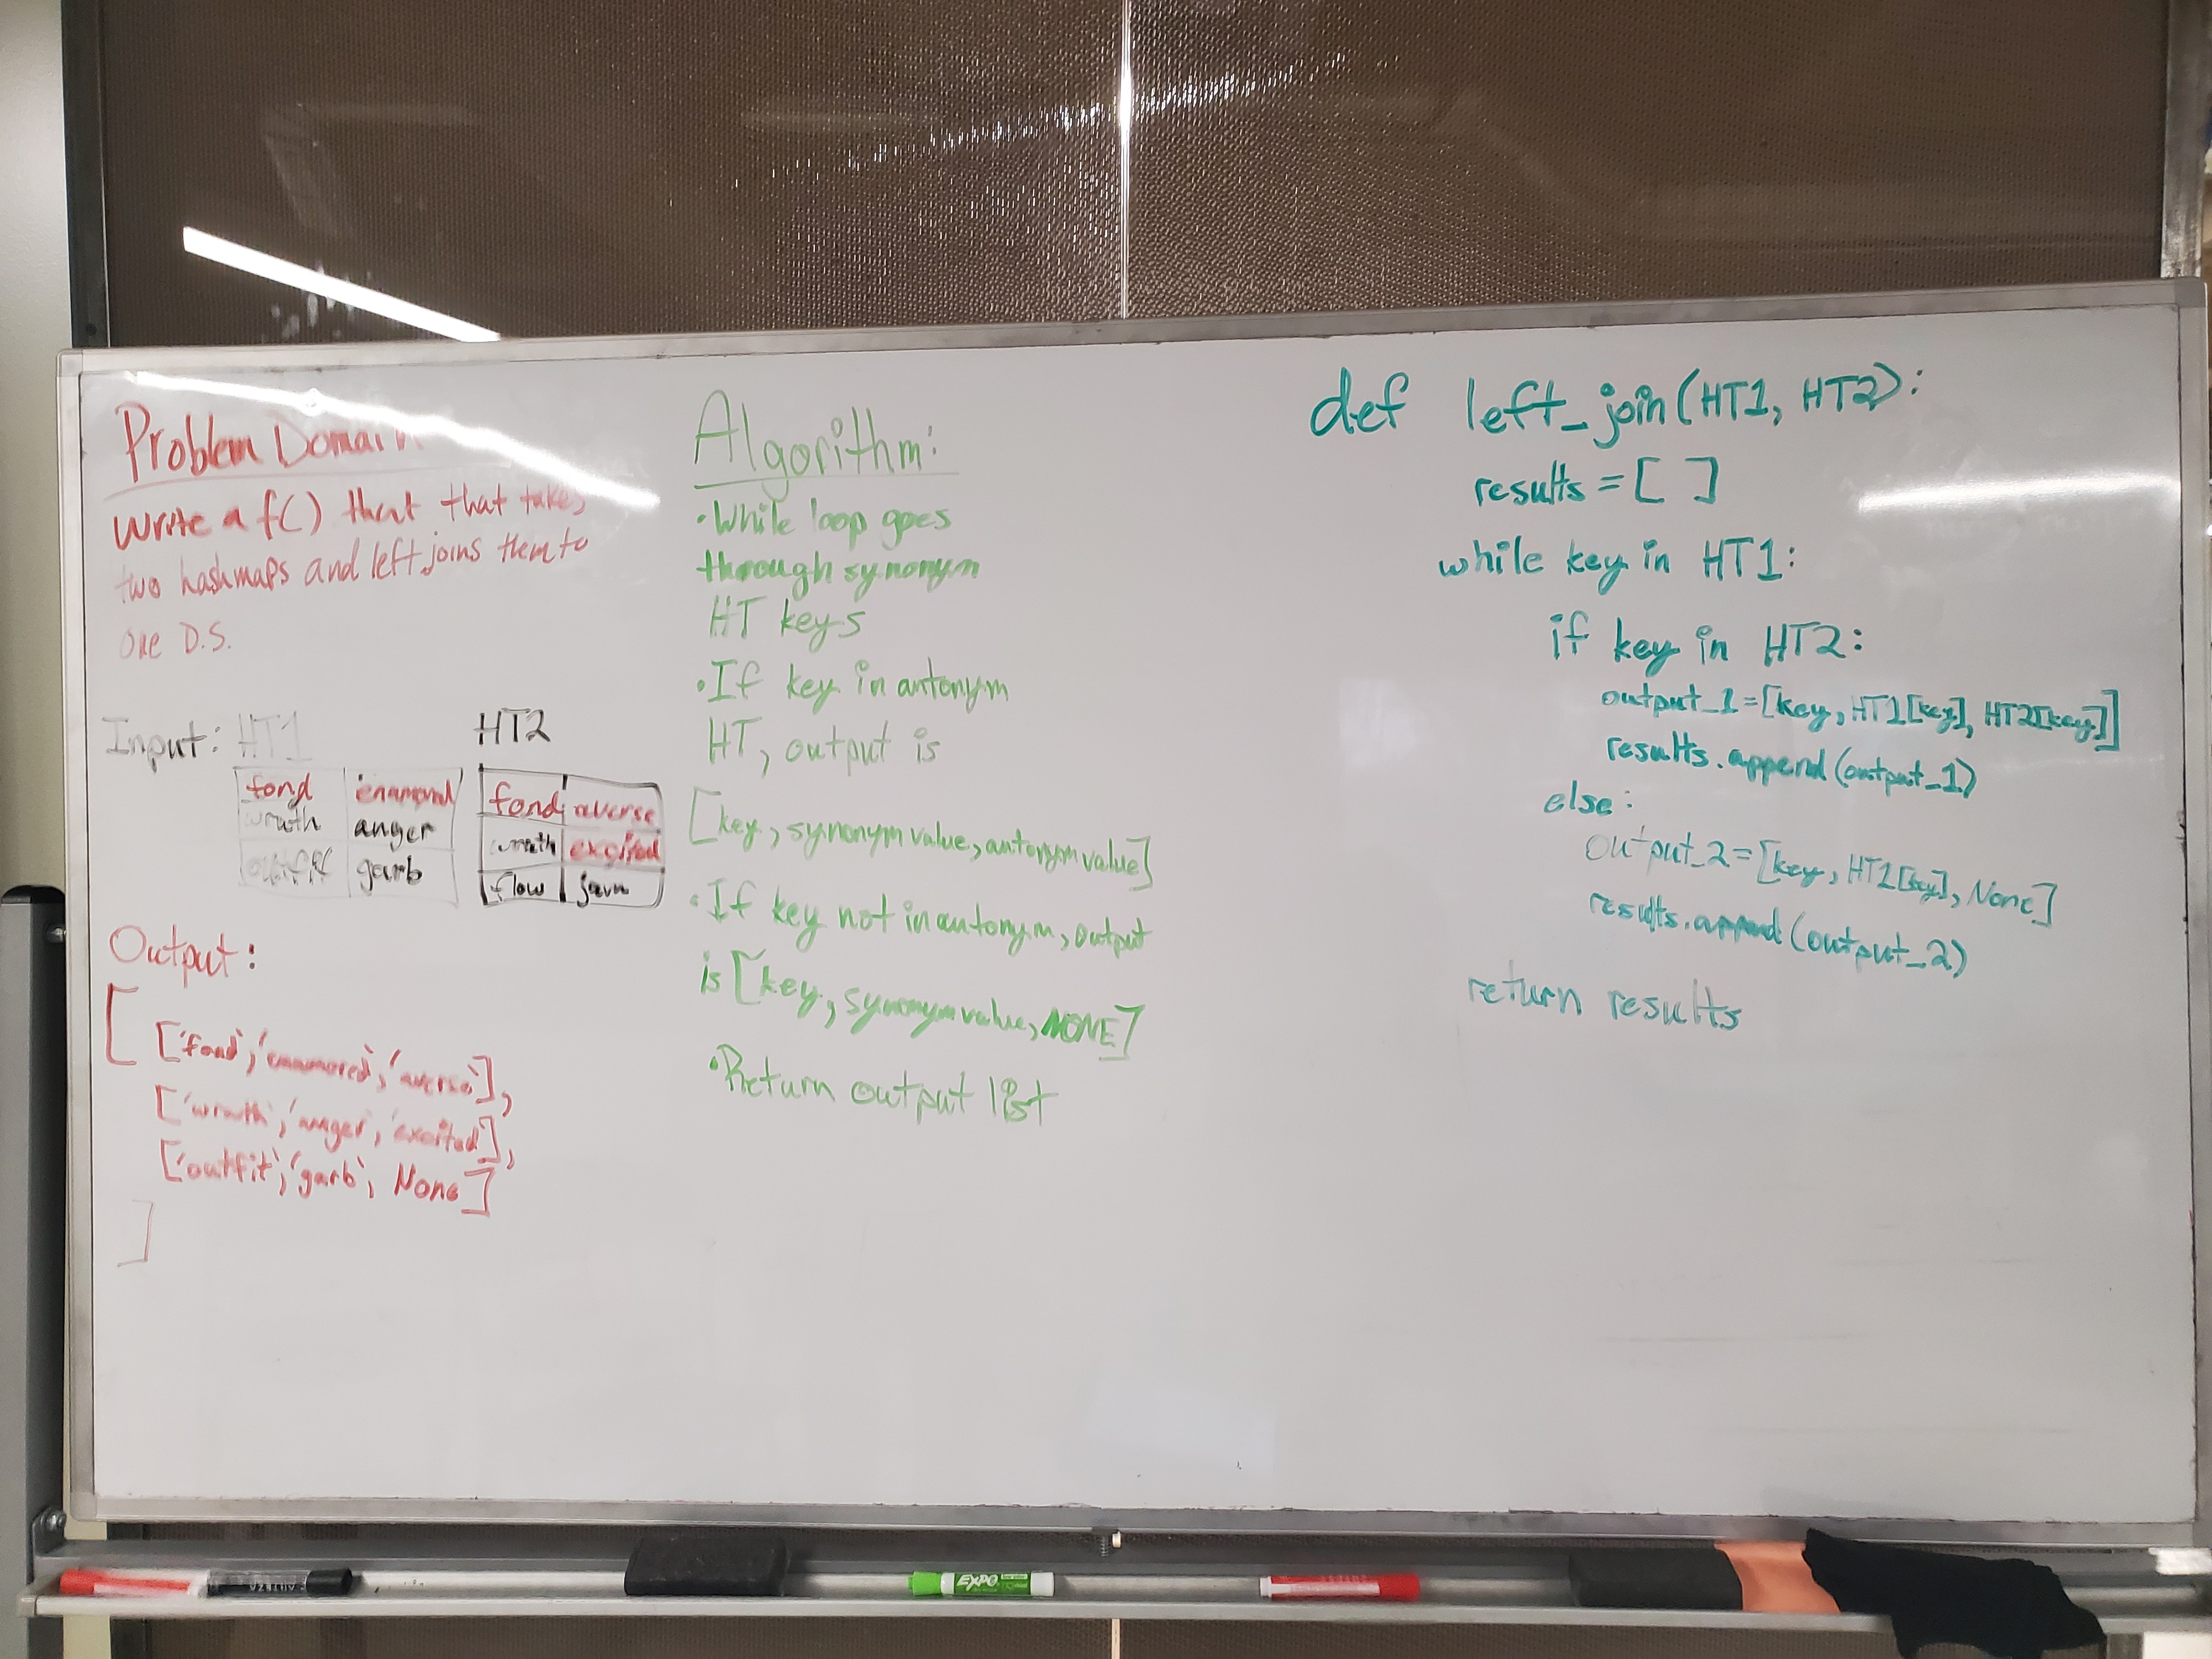 Problem Domain
Write a f() that that takes
two hashmaps and left joins them to
one D.S.
Input: HT1
fond enamored
wrath anger
outfit garb
HT2
fond averse
wrath excited
flow jam
Output:
[
['fond', 'enamored', 'averse'],
['wrath', 'anger', 'excited'],
['outfit', 'garb', None]
]
Algorithm:
• While loop goes
through synonym
HT keys
• If key in antonym
HT, output is
[key, synonym value, antonym value]
• If key not in antonym, output
is [key, synonym value, NONE]
• Return output list
def left_join(HT1, HT2):
results = [ ]
while key in HT1:
if key in HT2:
output_1 = [key, HT1[key], HT2[key]]
results.append(output_1)
else:
output_2 = [key, HT1[key], None]
results.append(output_2)
return results
EXPO